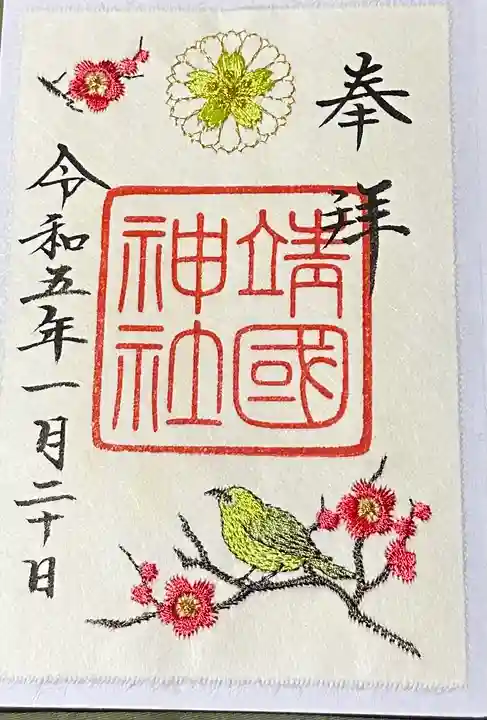 奉拝
靖國
神社
令和五年一月二十日